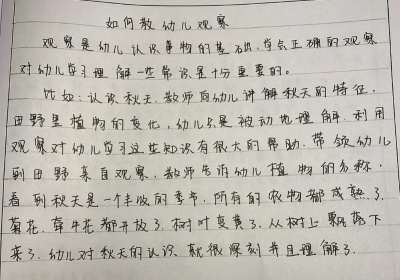 如何教幼儿观察
观察是幼儿认识事物的基础,学点正确的观察
对幼儿学习理解一些常识是十分重要的。
比如:认识秋天,教师向幼儿讲解秋天的特征,
田野里植物的变化,幼儿只是被动地理解,利用
观察对幼儿学习这些知识有很大的帮助,带领幼儿
到田野亲自观察,教师告诉幼儿植物的名称,
看到秋天是一个丰收的季节,所有的农物都成熟了,
菊花、牵牛花都开放了,树叶变黄了,从树上飘落下
来了,幼儿对秋天的认识就很深刻并且理解了.